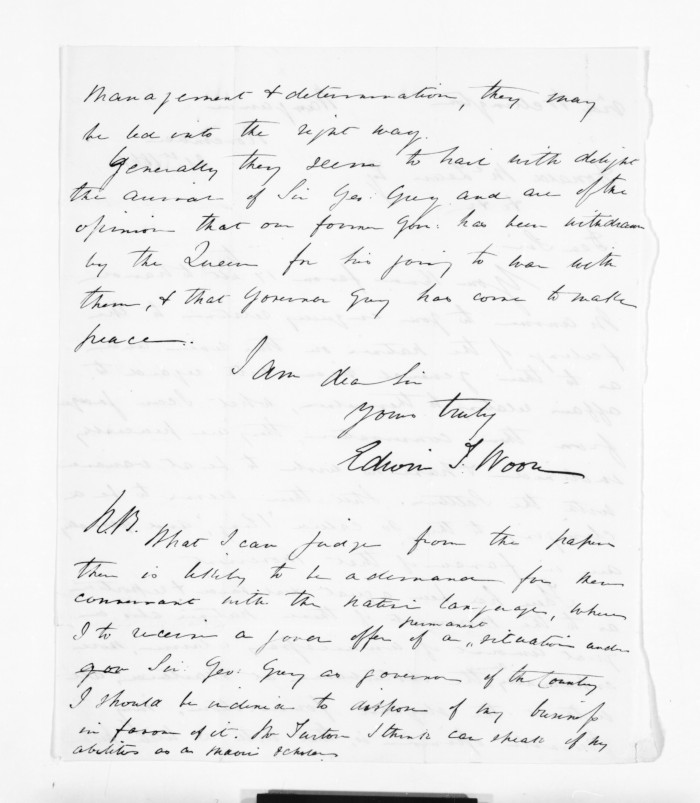 management & determination, they may
be led into the right way.
Generally they seem to hail with delight
the arrival of Sir Geo: Grey and are of the
opinion that our former Gov: has been withdrawn
by the Queen for his going to war with
them, & that Governor Grey has come to make
peace.
I am dear Sir
Yours truly
Edwin F. Woon
N.B. What I can judge from the papers
there is likely to be a demand for men
conversant with the native language, where
I to receive a good offer of a permanent situation under
gov Sir Geo: Grey as governor of the Country
I should be inclined to dispose of my business
in favor of it. Mr Turton I think can speak of my
abilities as a Maori scholar.